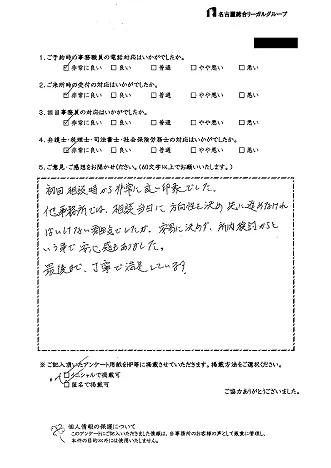 名古屋総合リーガルグループ
1.ご予約時の事務職員の電話対応はいかがでしたか。
☑非常に良い □良い □普通 □やや悪い □悪い
2.ご来所時の受付の対応はいかがでしたか。
☑非常に良い □良い □普通 □やや悪い □悪い
3.担当事務員の対応はいかがでしたか。
☑非常に良い □良い □普通 □やや悪い □悪い
4.弁護士・税理士・司法書士・社会保険労務士の対応はいかがでしたか。
☑非常に良い □良い □普通 □やや悪い □悪い
5.ご意見・ご感想をお聞かせください。(60文字以上でお願いいたします。)
初回相談時から非常に良い印象でした。
他事務所では、相談当日に方向性を決め、先に進めなければ
いけない雰囲気でしたが、安易に決めず、所内検討からと
いう事で安心感もありました。
最後まで、丁寧で満足しています。
※ご記入頂いたアンケート用紙をHP等に掲載させていただきます。掲載方法をご選択ください。
イニシャルで掲載可
□匿名で掲載可
ご協力ありがとうございました。
個人情報の保護について
このアンケートにご記入いただきました情報は、当事務所のお客様の声として厳重に管理し、
本件の目的以外には使用いたしません。